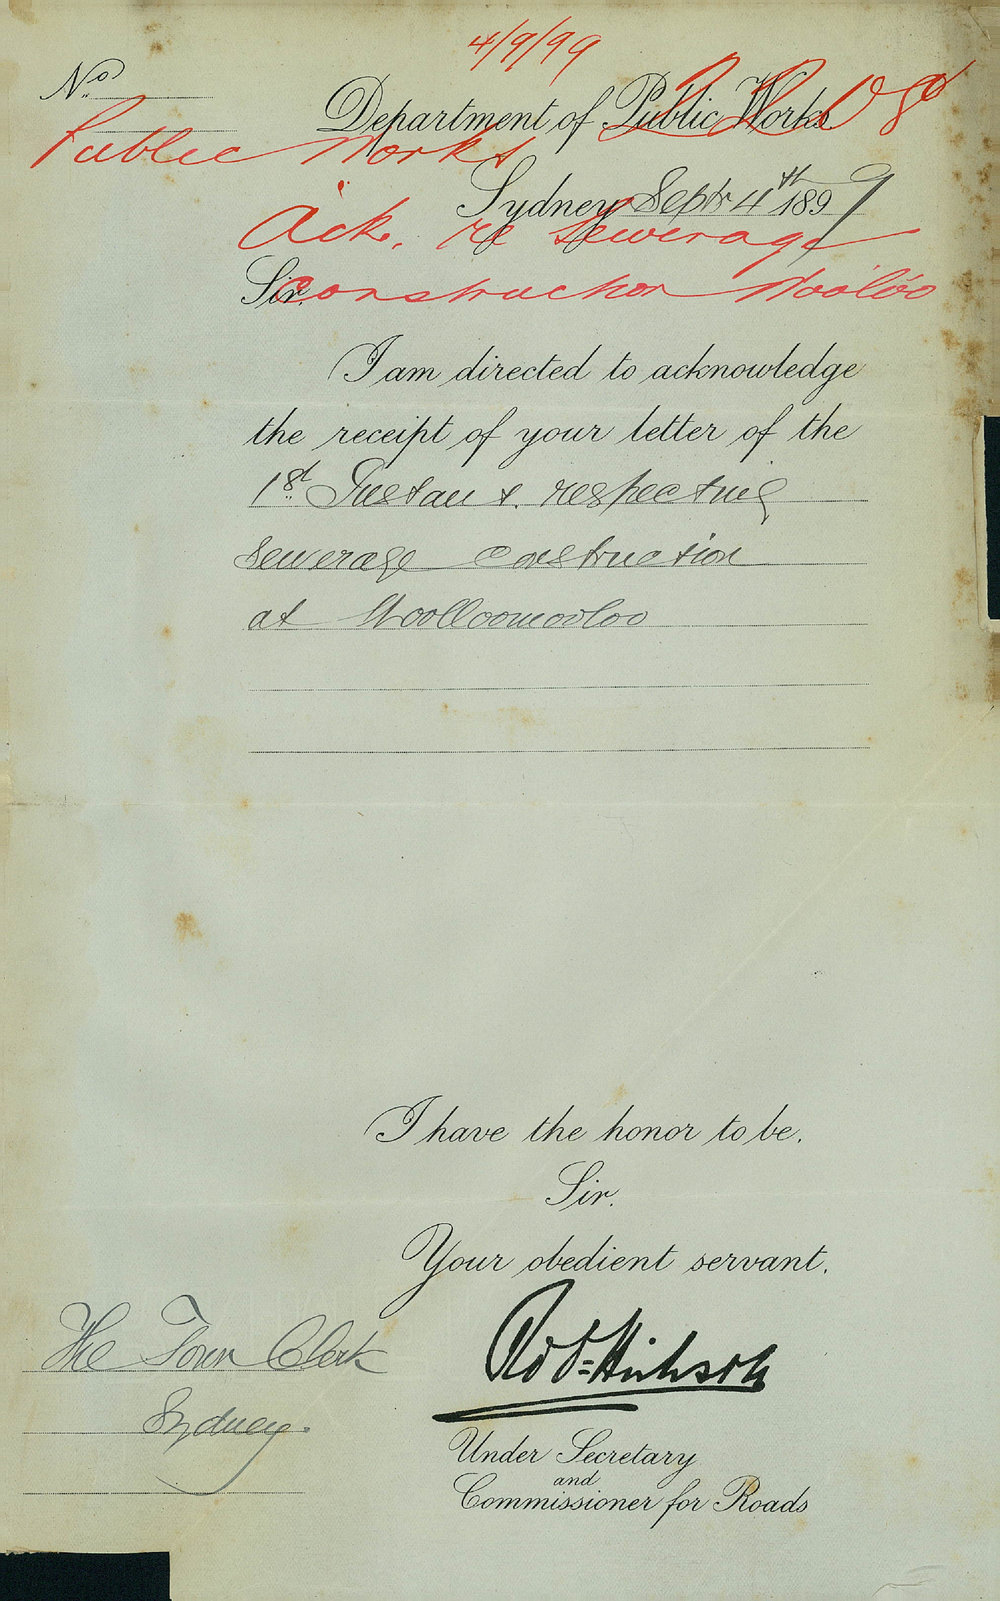 4/9/99
No.
Department of Public Works.
Public Works
Sydney Septr 4th 1899
Ack. re Sewerage
Sir.
Construction Wooloo
I am directed to acknowledge
the receipt of your letter of the
1st Instant. respecting
Sewerage Construction
at Woolloomooloo
I have the honor to be,
Sir.
Your obedient servant.
The Town Clerk
Sydney.
Under Secretary
and
Commissioner for Roads